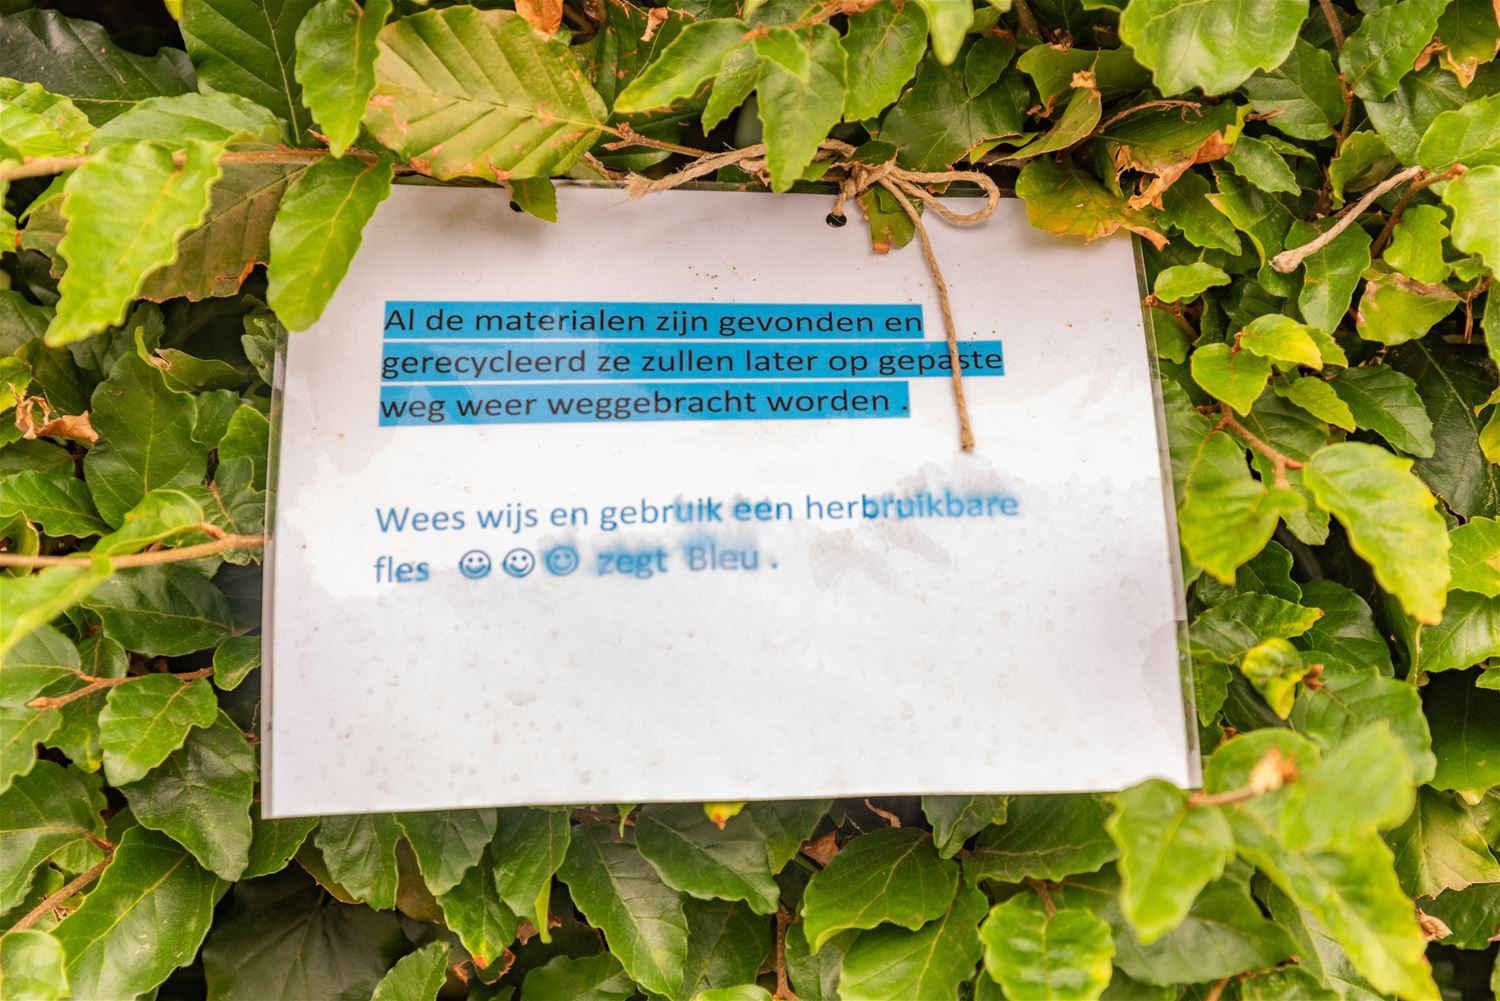 Al de materialen zijn gevonden en
gerecycleerd ze zullen later op gepaste
weg weer weggebracht worden .
Wees wijs en gebruik een herbruikbare
fles ☺☺☺ zegt Bleu .